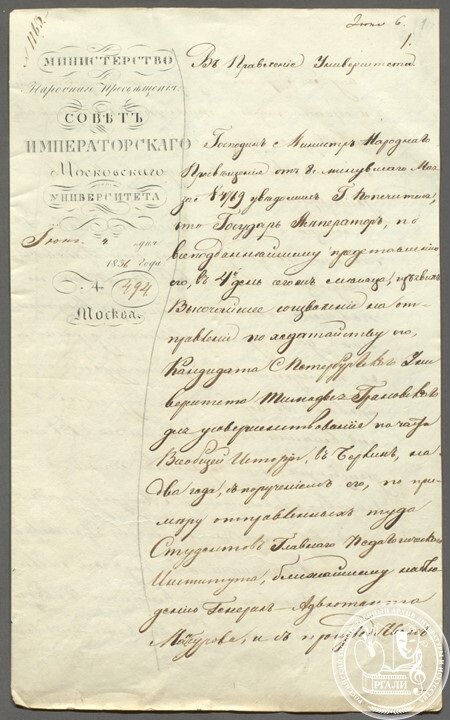 № 1163.
Июня 6.
1
1.
МИНИСТЕРСТВО
Народнаго Просвѣщенія.
СОВѢТЪ
ИМПЕРАТОРСКАГО
Московскаго
УНИВЕРСИТЕТА
Іюня 4 дня
1836 года.
494.
Москва.
Въ Правленіе Университета
Господинъ Министръ Народнаго
Просвѣщенія отъ минувшаго Мая
за № увѣдомилъ Г. Попечителя,
что Государь Императоръ, по
всеподданнѣйшему представленію
его, въ 4й день сего мѣсяца, изъявилъ
Высочайшее соизволеніе на от-
правленіе по ходатайству его,
Кандидата С. Петербургскаго Уни
верситета Тимофея Грановскаго
для усовершенствованія по части
Всеобщей Исторіи, въ Берлинъ, на
два года, съ порученіемъ его, по при-
мѣру отправленныхъ туда
Студентовъ Главнаго Педагогическаго
Института, ближайшему наблю
денію Генералъ-Адъютанта
Мансурова, и съ
РГАЛИ